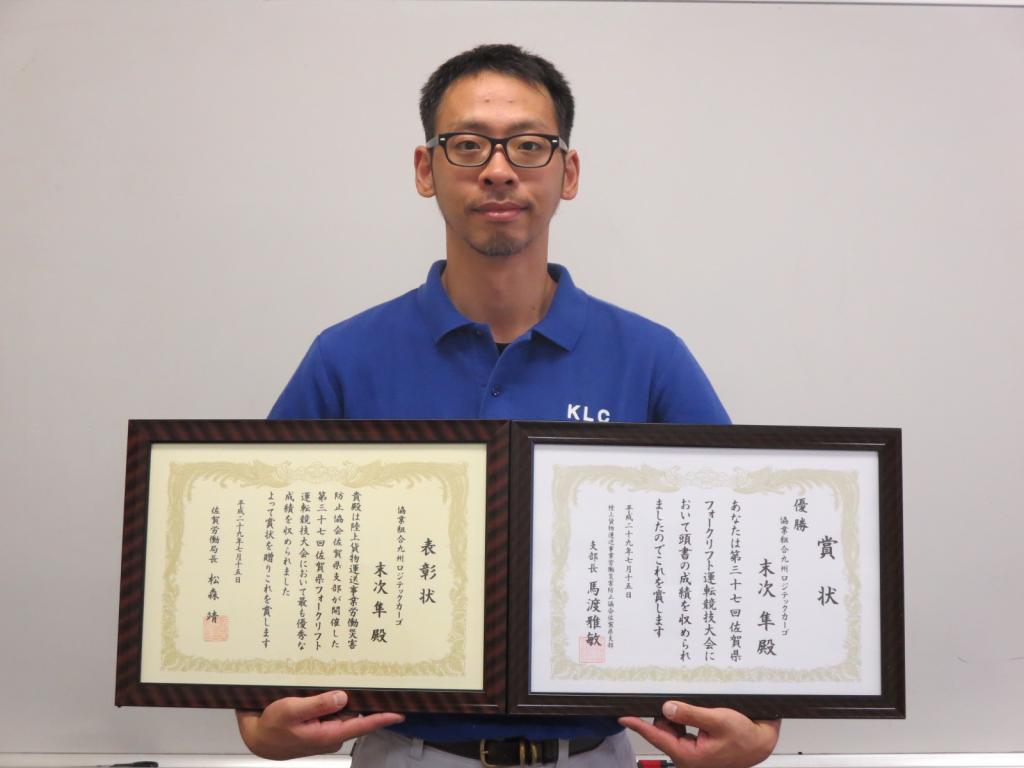 KLC
表彰状
協業組合九州ロジテックカーゴ
末次 隼 殿
貴殿は陸上貨物運送事業労働災害
防止協会佐賀県支部が開催した
第三十七回佐賀県フォークリフト
運転競技大会において最も優秀な
成績を収められました
よって賞状を贈りこれを賞します
平成二十九年七月十五日
佐賀労働局長 松森 靖
賞状
優勝
協業組合九州ロジテックカーゴ
末次 隼 殿
あなたは第三十七回佐賀県
フォークリフト運転競技大会に
おいて頭書の成績を収められ
ましたのでこれを賞します
平成二十九年七月十五日
陸上貨物運送事業労働災害防止協会佐賀県支部
支部長 馬渡雅敏